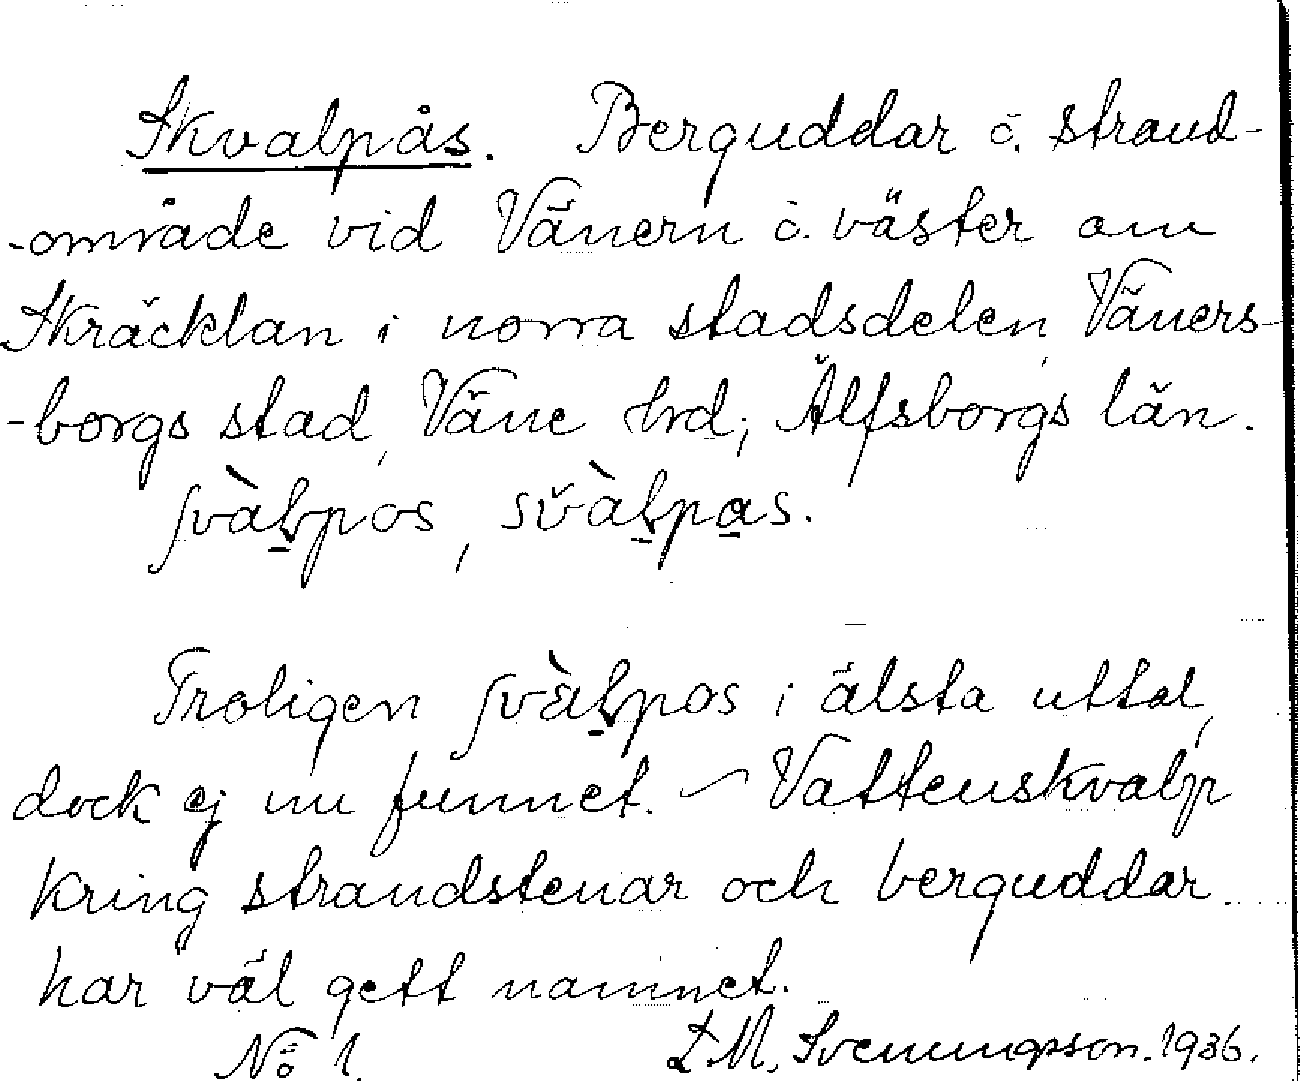 Skvalpås. Berguddar o. strand-
-område vid Vänern o. väster om
Skräcklan i norra stadsdelen, Väners-
-borgs stad, Väne hrd; Älfsborgs län.
ʃvàḻpos, svàḻpa̱s.
Troligen ʃvàḻpos i älsta uttal,
dock ej nu funnet. – Vattenskvalp
kring strandstenar och berguddar
har väl gett namnet.
No 1. L.M. Svenungsson. 1936.